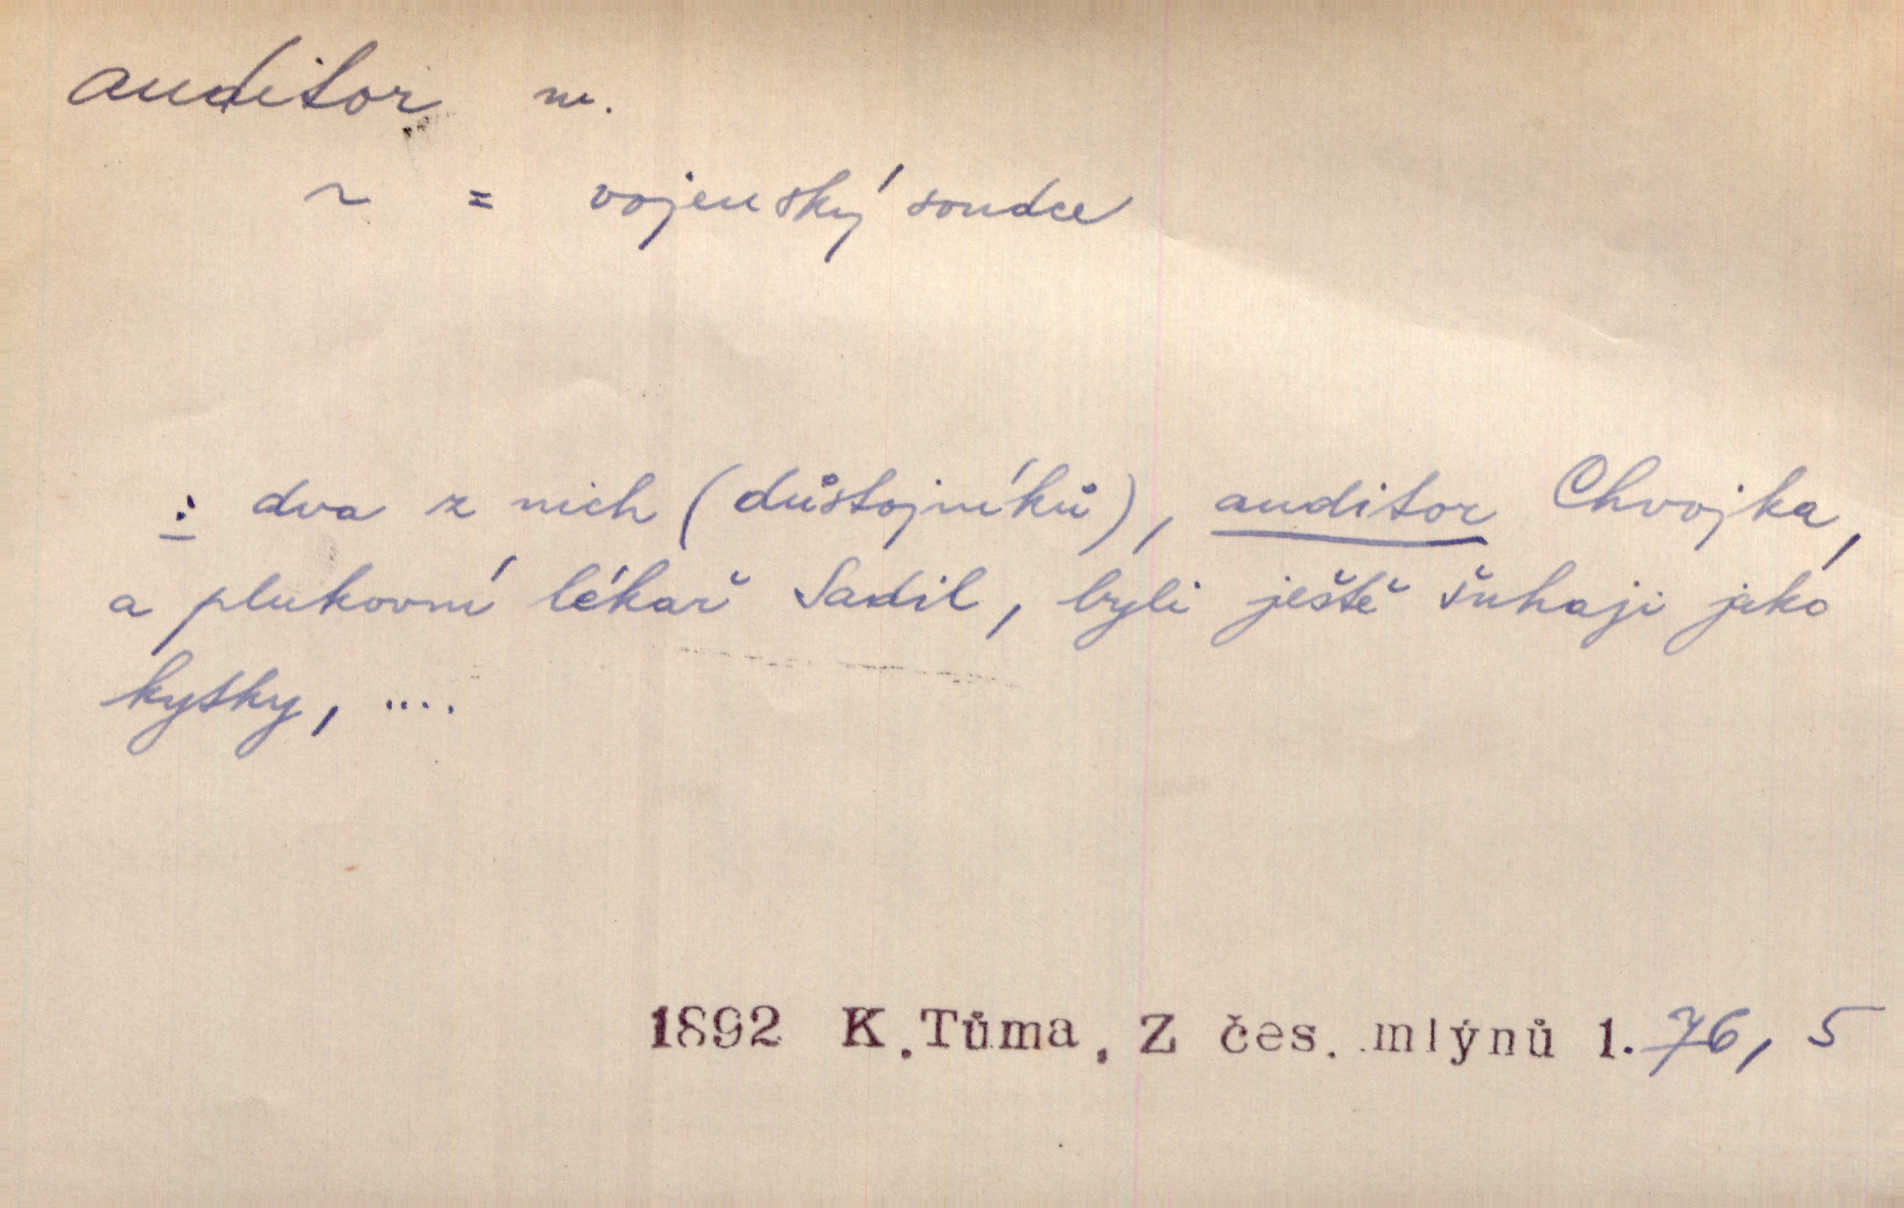 auditor m.
~ = vojenský soudce
: dva z nich (důstojníků), auditor Chvojka,
a plukovní lékař Sadil, byli ještě šuhaji jako
kytky, ....
1892 K. Tůma, Z čes. mlýnů 1. 76, 5